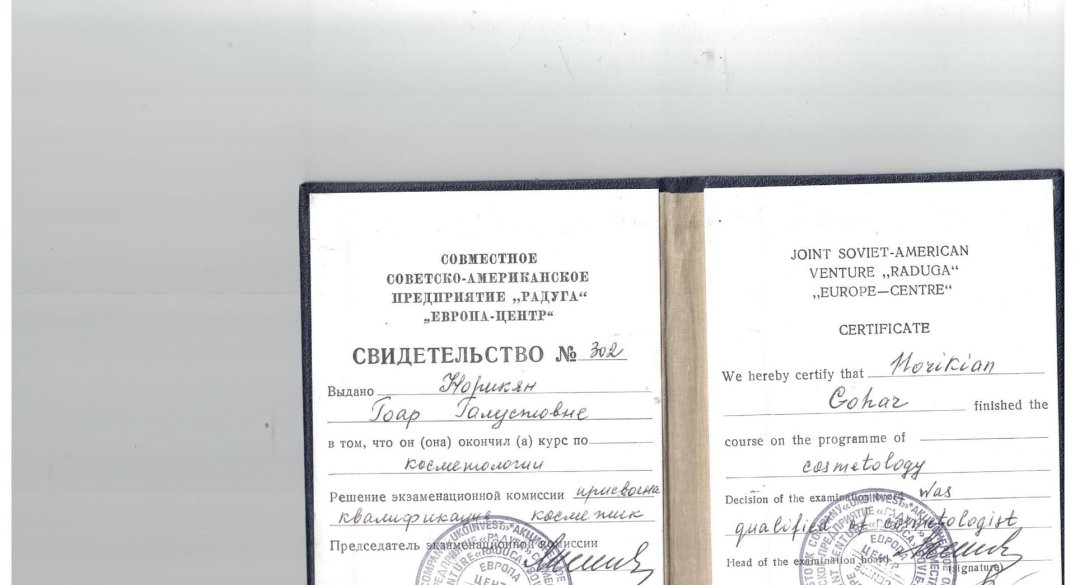 СОВМЕСТНОЕ
СОВЕТСКО-АМЕРИКАНСКОЕ
ПРЕДПРИЯТИЕ „РАДУГА“
„ЕВРОПА-ЦЕНТР“
СВИДЕТЕЛЬСТВО № 302
Выдано Норикян
Гоар Галустовне
в том, что он (она) окончил (а) курс по
косметологии
Решение экзаменационной комиссии присвоена
квалификация косметик
Председатель экзаменационной комиссии
JOINT SOVIET-AMERICAN
VENTURE „RADUGA“
„EUROPE—CENTRE“
CERTIFICATE
We hereby certify that Norikian
Gohar finished the
course on the programme of
cosmetology
Decision of the examination board was
qualified of cosmetologist
Head of the examination board
(signature)